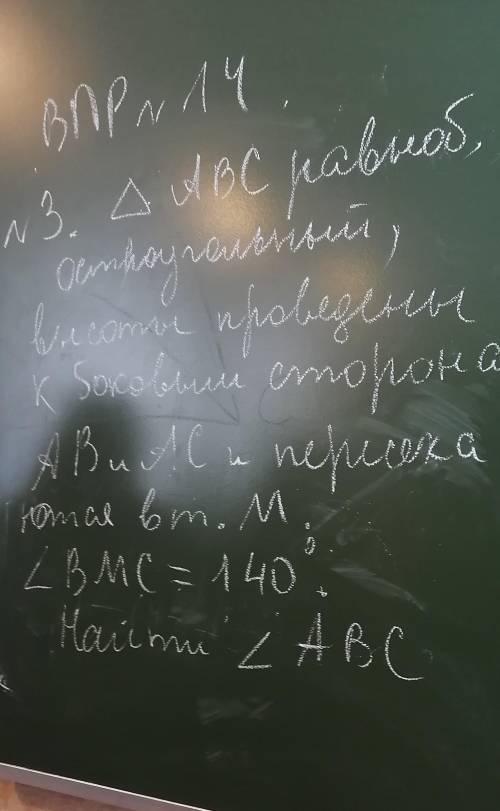 ВПР № 14.
№3. △ АВС равноб,
остроугольный,
высоты проведены
к боковым сторона
АВ и АС и пересека
ются в т. М.
∠ВМС = 140°.
Найти ∠АВС